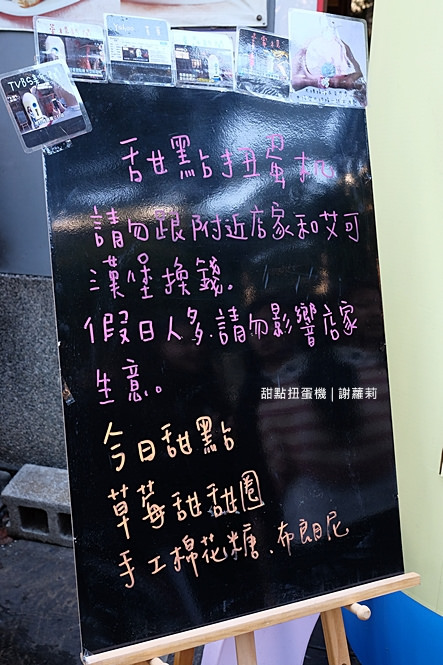 TVBS
甜點扭蛋机
請勿跟附近店家和艾可
漢堡換錢。
假日人多.請勿影響店家
生意。
甜點扭蛋機 | 謝蘿莉
今日甜點
草莓甜甜圈
手工棉花糖、布朗尼